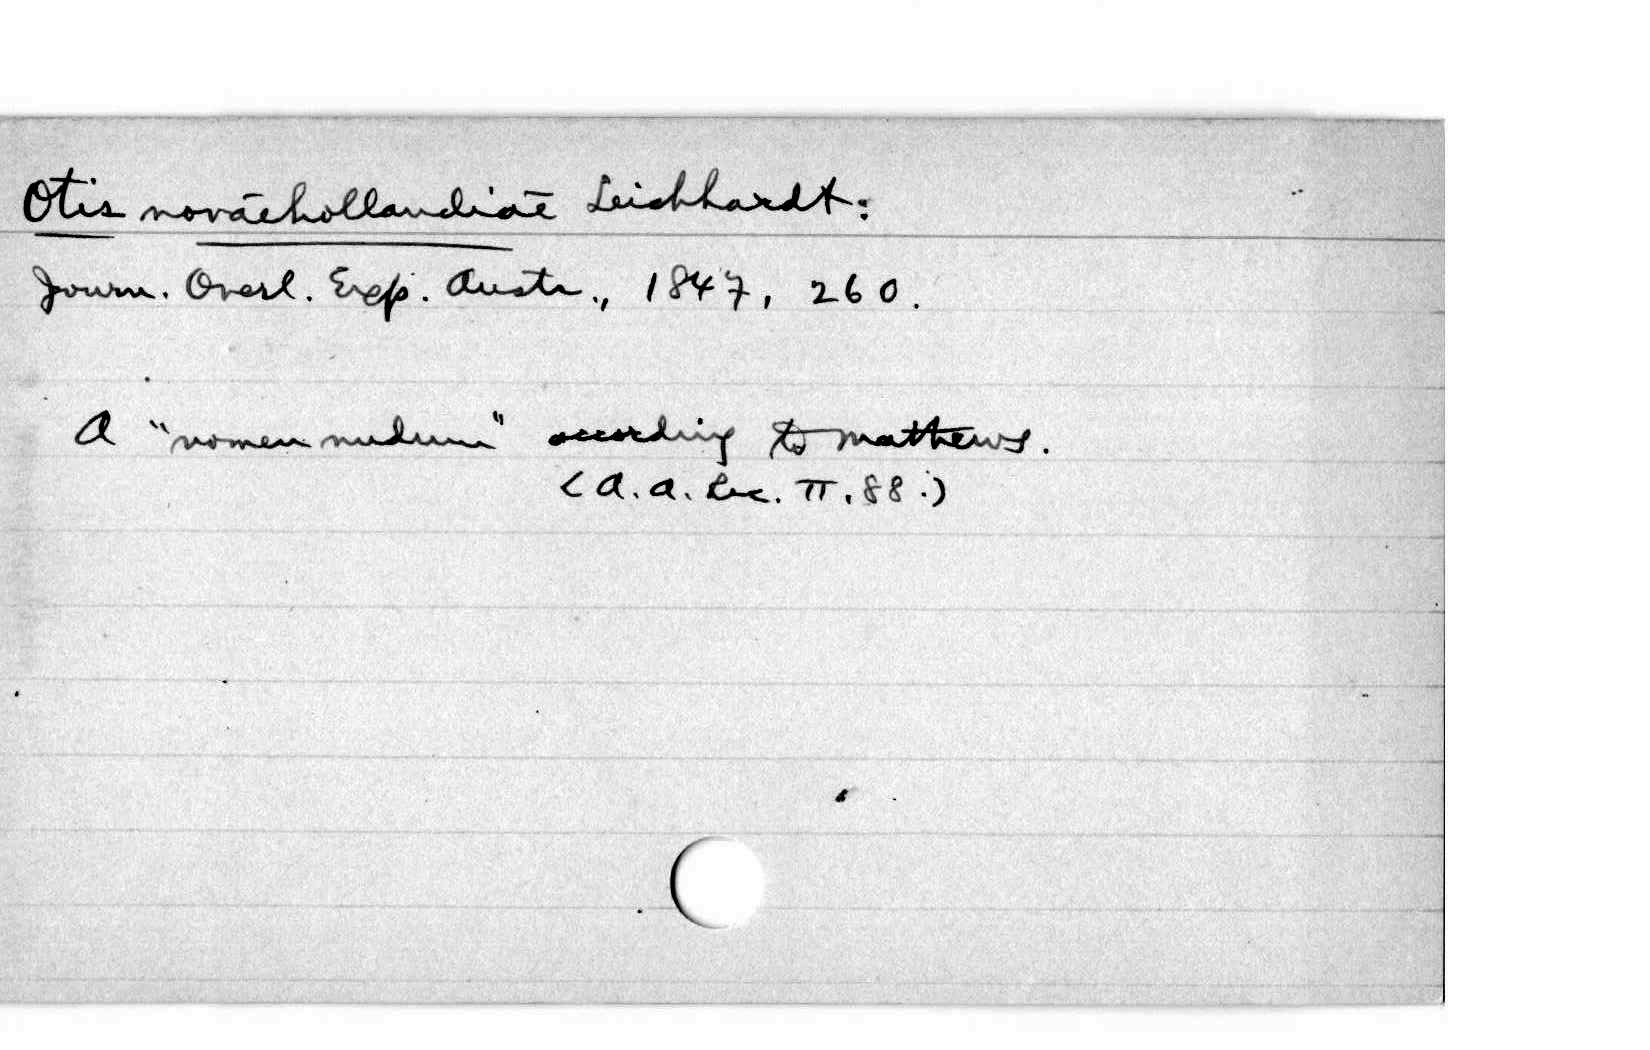 Otis novaehollandiae Leichhardt:
Journ. Overl. Exp. Austr., 1847, 260.
A "nomen nudum" according to Mathews.
(A. A. Rec. II, 88.)